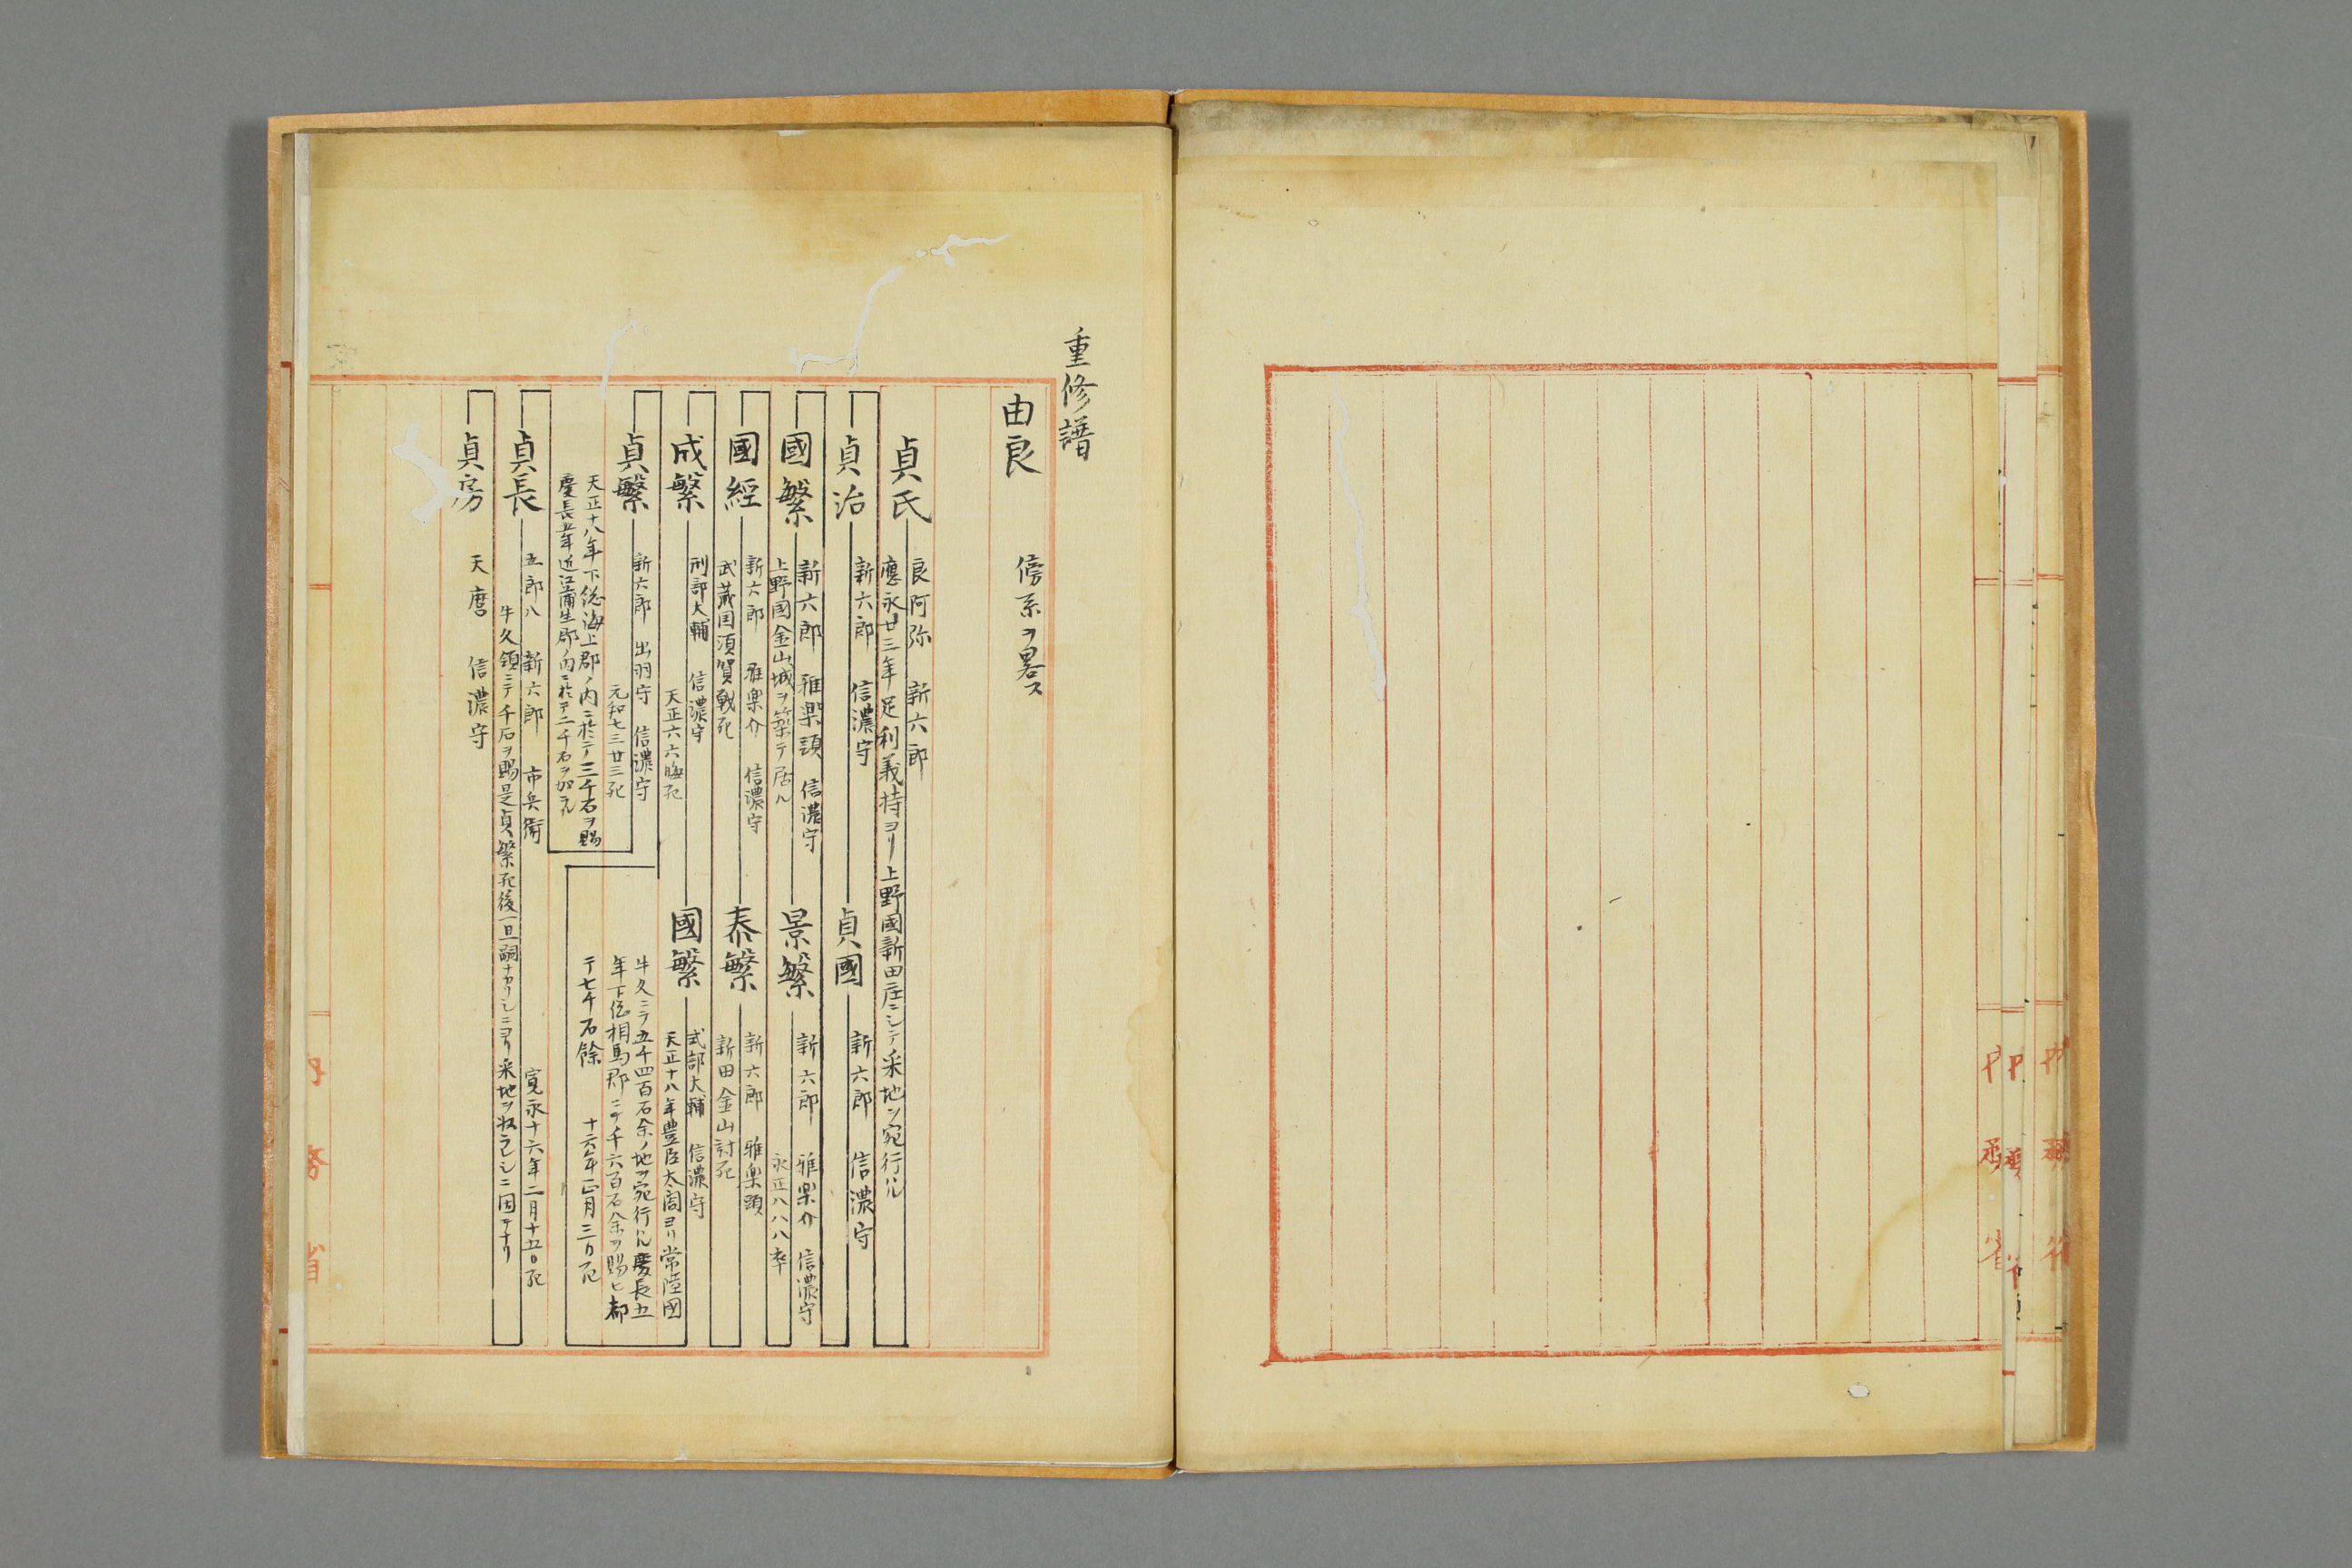 重修譜
由良 傍系ヲ畧ス
貞氏 良阿弥 新六郎
應永廿三年足利義持ヨリ上野國新田庄ニシテ采地ヲ宛行ハル
貞治 新六郎 信濃守
貞國 新六郎 信濃守
國繁 新六郎 雅楽頭 信濃守
上野国金山城ヲ築テ居ル
景繁 新六郎 雅楽介 信濃守
永正八八八卒
國經 新六郎 雅楽介 信濃守
武蔵国須賀戦死
泰繁 新六郎 雅楽頭
新田金山討死
成繁 刑部大輔 信濃守
天正六六晦死
國繁 式部大輔 信濃守
天正十八年豊臣太閤ヨリ常陸國
牛久ニテ五千四百石余ノ地ヲ宛行ハル慶長五
年下総相馬郡ニテ千六百石余ヲ賜ヒ都
テ七千石餘 十六年正月三日死
貞繁 新六郎 出羽守 信濃守
元和七三廿三死
天正十八年下総海上郡ノ内ニ於テ三千石ヲ賜
慶長五年近江蒲生郡ノ内ニ於テ二千石ヲ加ラル
貞長 五郎八 新六郎 市兵衛 寛永十六年二月十五日死
牛久領ニテ千石ヲ賜是貞繁死後一旦嗣ナカリシニヨリ采地ヲ収ラレシニ因テナリ
貞房 天麿 信濃守
内務省